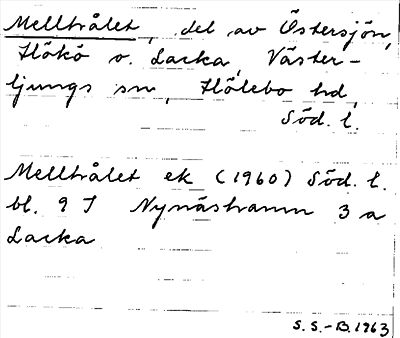 Melltrålet, del av Östersjön,
Hökö o. Lacka, Väster-
ljungs sn, Hölebo hd,
Söd. l.
Mellträlet ek (1960) Söd. l.
bl. 9 I Nynäshamn 3 a
Lacka
S. S.-B. 1963